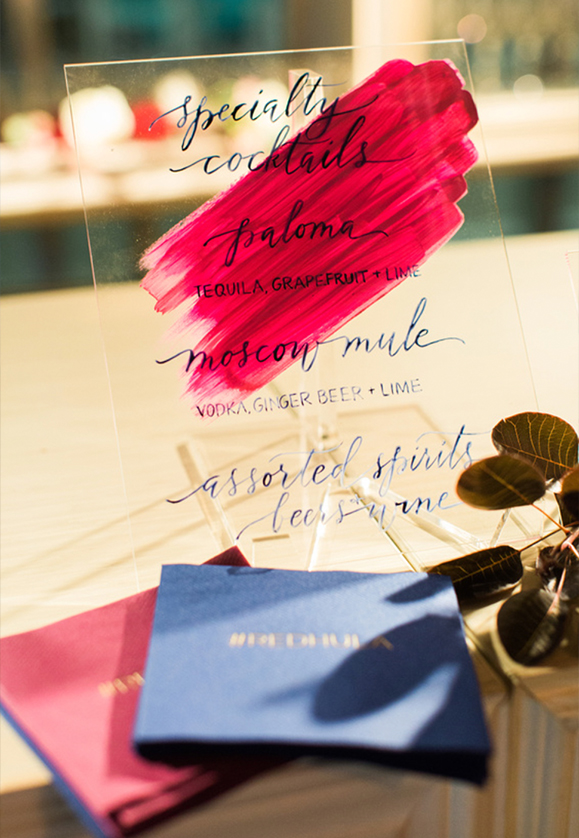 specialty
cocktails
paloma
TEQUILA, GRAPEFRUIT + LIME
moscow mule
VODKA, GINGER BEER + LIME
assorted spirits
beers + wine
#REDHULA